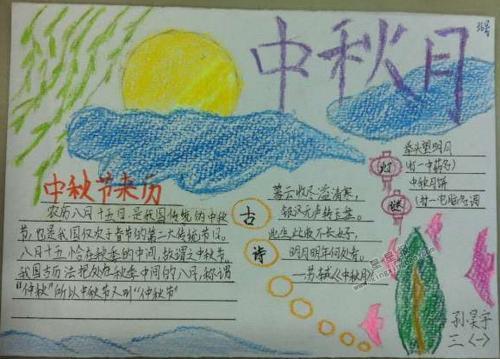 中秋月
中秋节来历
农历八月十五日,是我国传统的中秋
节,也是我国仅次于春节的第二大传统节日。
八月十五恰在秋季的中间,故谓之中秋节。
我国古历法把处在秋季中间的八月,称谓
“仲秋”所以中秋节又叫“仲秋节”
古
诗
暮云收尽溢清寒,
银汉无声转玉盘。
此生此夜不长好,
明月明年何处看。
—苏轼《中秋月》
灯
谜
举头望明月
(打一中药名)
中秋月饼
(打一电脑名词
孙昊宇
三〈一〉